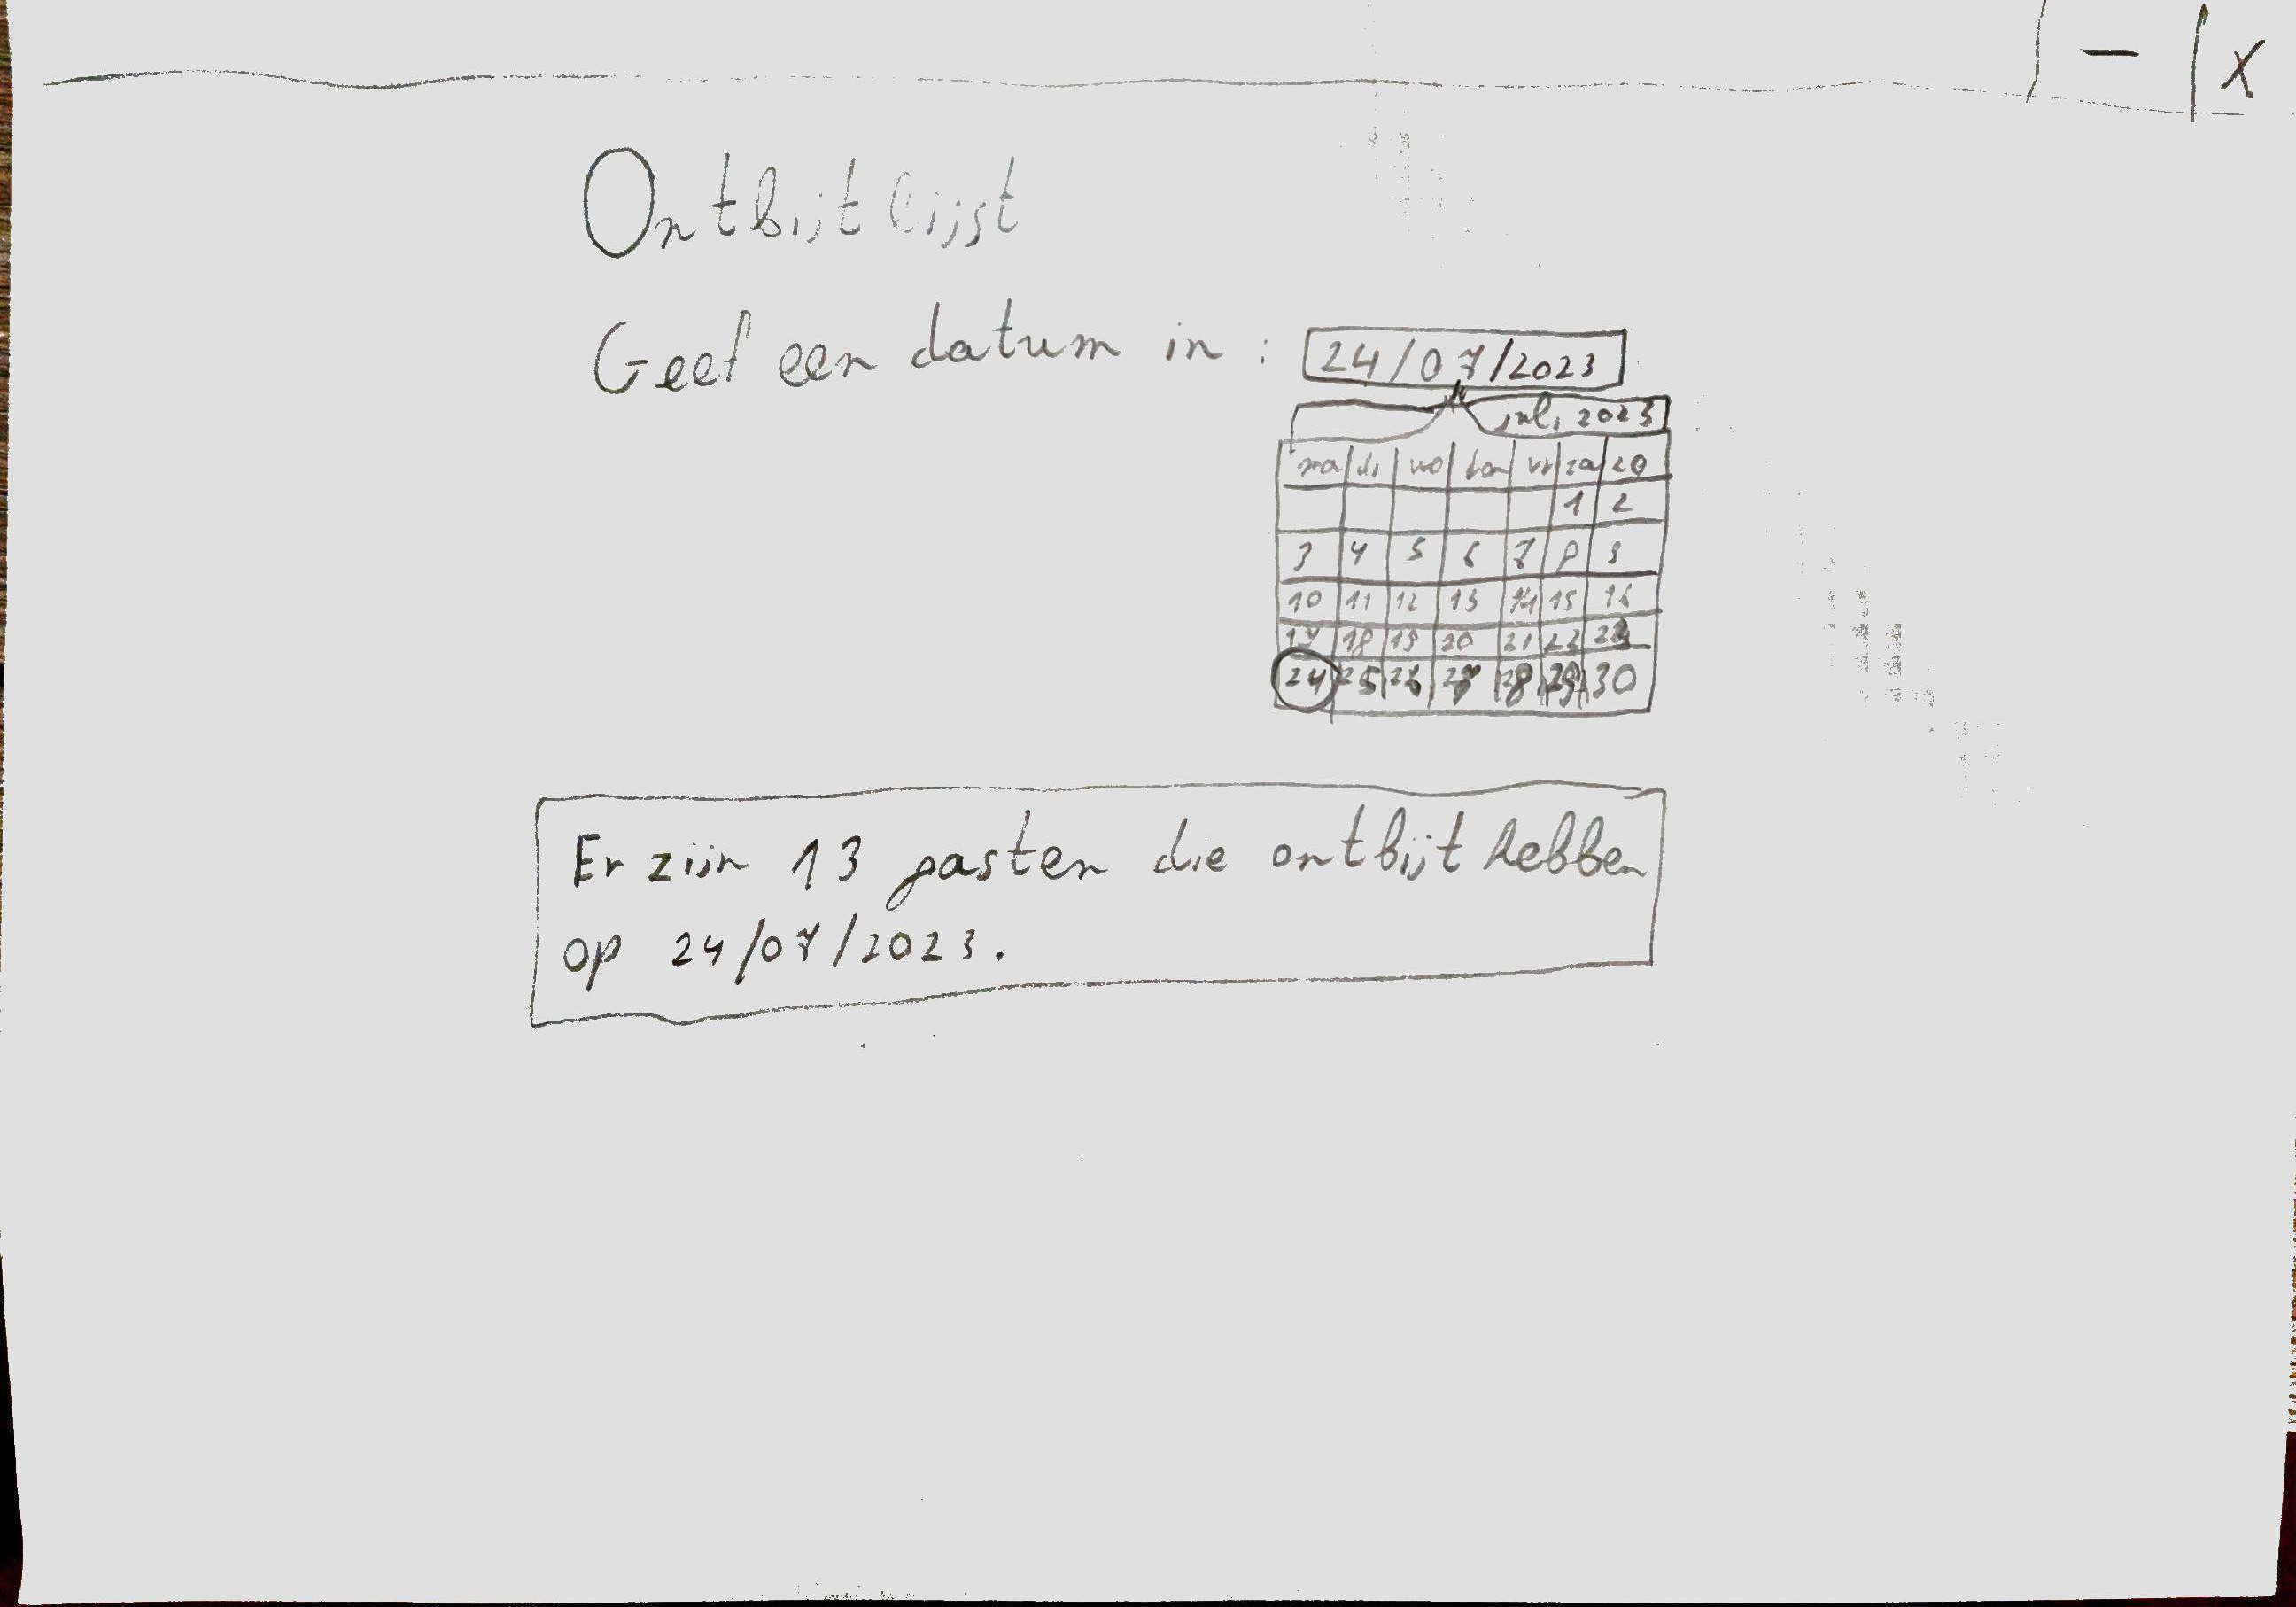 - | x
Ontbijtlijst
Geef een datum in : 24/07/2023
juli 2023
ma di wo don vr za zo
1 2
3 4 5 6 7 8 9
10 11 12 13 14 15 16
17 18 19 20 21 22 23
24 25 26 27 28 29 30
Er zijn 13 gasten die ontbijt hebben
op 24/07/2023.